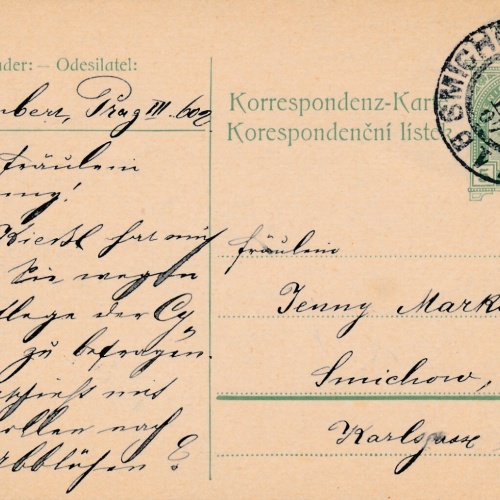 nder: — Odesilatel:
bert, Prag III. 602
Fräulein
ny!
hat mich
Sie wegen
flege der Cy
zu befragen.
schieht mit
ollen nach
bblühen?
Korrespondenz-Kar
Korespondenční lístek
SMICH
Fräulein
Jenny Mark
Smichow,
Karlsgasse